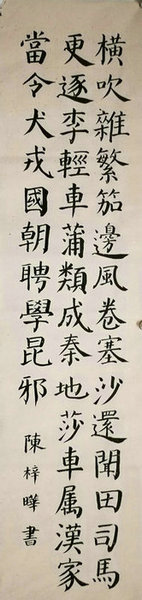 橫吹雜繁笳邊風卷塞沙還聞田司馬
更逐李輕車蒲類成秦地莎車属漢家
當令犬戎國朝聘學昆邪
陳梓曄書